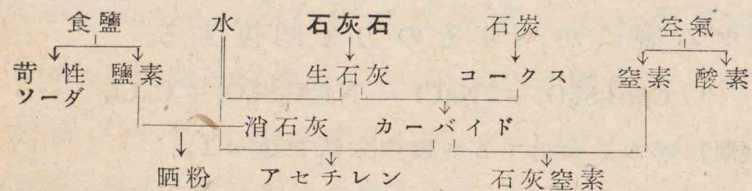 食鹽 水 石灰石 石炭 空氣
苛性ソーダ 鹽素 生石灰 コークス 窒素 酸素
消石灰 カーバイド
晒粉 アセチレン 石灰窒素